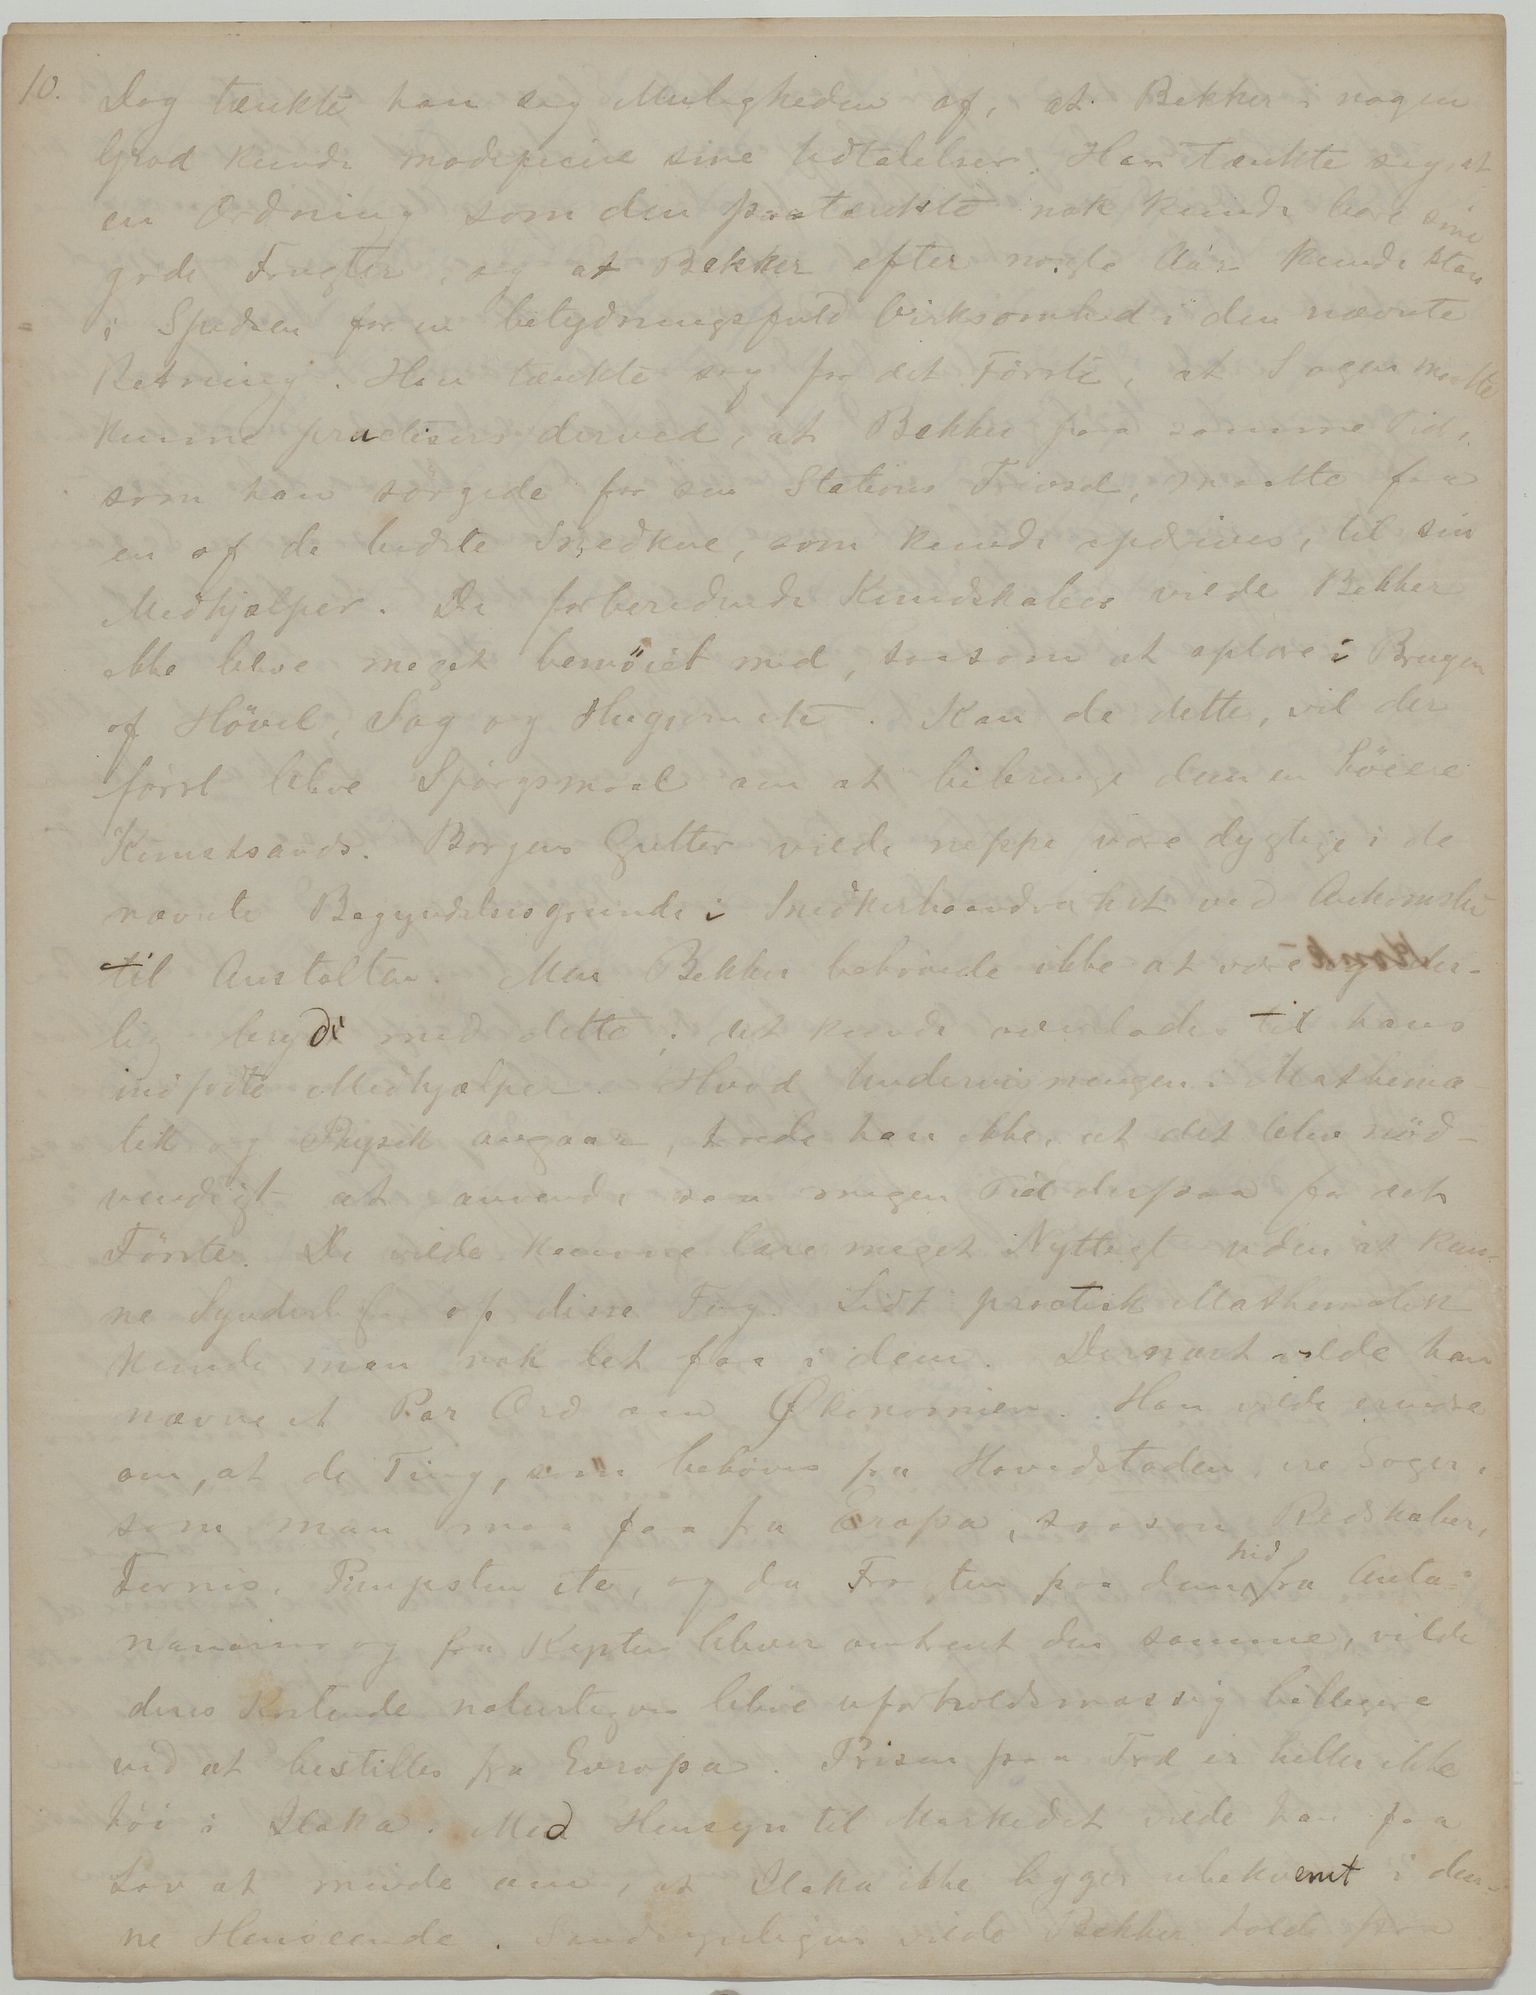 10. Dog tænkte han sig Muligheden af, at Bekker i nogen
Grad kunde modificere sine Udtalelser. Han tænkte sig, at
en Ordning som den paatænkte nok kunde bære sine
gode Frugter, og at Bekker efter nogle Aar kunde staa
i Spidsen for en betydningsfuld Virksomhed i den nævnte
Retning. Han tænkte sig for det Förste, at Sagen maatte
kunne practiseres derved, at Bekker paa samme Tid,
som han sörgede for sin Stations Trivsel, maatte faa
en af de bedste Snedkere, som kunde opdrives, til sin
Medhjælper. De forberedende Kundskaber vilde Bekker
ikke blive meget bemöiet med, saasom at oplære i Brugen
af Hövel, Sag og Hugjern etc. Kan de dette, vil der
först blive Spörgsmaal om at bibringe dem en höiere
Kunstsands. Borgens Gutter vilde neppe være dygtige i de
nævnte Begyndelsesgrunde i Snedkerhaandværket ved Ankomsten
til Anstalten. Men Bekker behövede ikke at være synder-
lig brydd med dette; det kunde overlades til hans
indfödte Medhjælper. Hvad Undervisningen i Mathema-
tik og Physik angaar, troede han ikke, at det blev nöd-
vendigt at anvende saa megen Tid derpaa for det
Förste. De vilde kunne lære meget Nyttigt uden at kun-
ne Synderligt af disse Ting. Lidt practisk Mathematik
kunde man nok let faa i dem. Dernæst vilde han
nævne et Par Ord om Økonomien. Han vilde erindre
om, at de Ting, som behöves fra Hovedstaden, ere Sager,
som man maa faa fra Eropa, saasom Redskaber,
Fernis, Pimpsten etc, og da Fragten paa dem hid fra Anta-
nanarivo og fra Kysten bliver omtrent den samme, vilde
deres Kostende naturligvis blive uforholdsmæssig billigere
ved at bestilles fra Evropa. Prisen paa Træ er heller ikke
höi i Ilaka. Med Hensyn til Markedet vilde han faa
Lov at minde om, at Ilaka ikke ligger ubekvemt i den-
ne Henseende. Sandsynligvis vilde Bekker holde paa